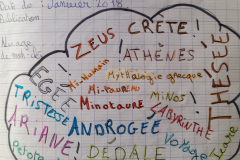 Date de : Janvier 2018
Publication
Nuage
de mots :
ZEUS CRÈTE !
! ATHÈNES
THÉSÉE
ÉGÉE !
Mi-humain
Mythologie grecque
Mi-taureau
MINOS !
TRISTESSE
Minotaure
LABYRINTHE
ARIANE !
ANDROGÉE
DÉDALE
Icare
Pelote